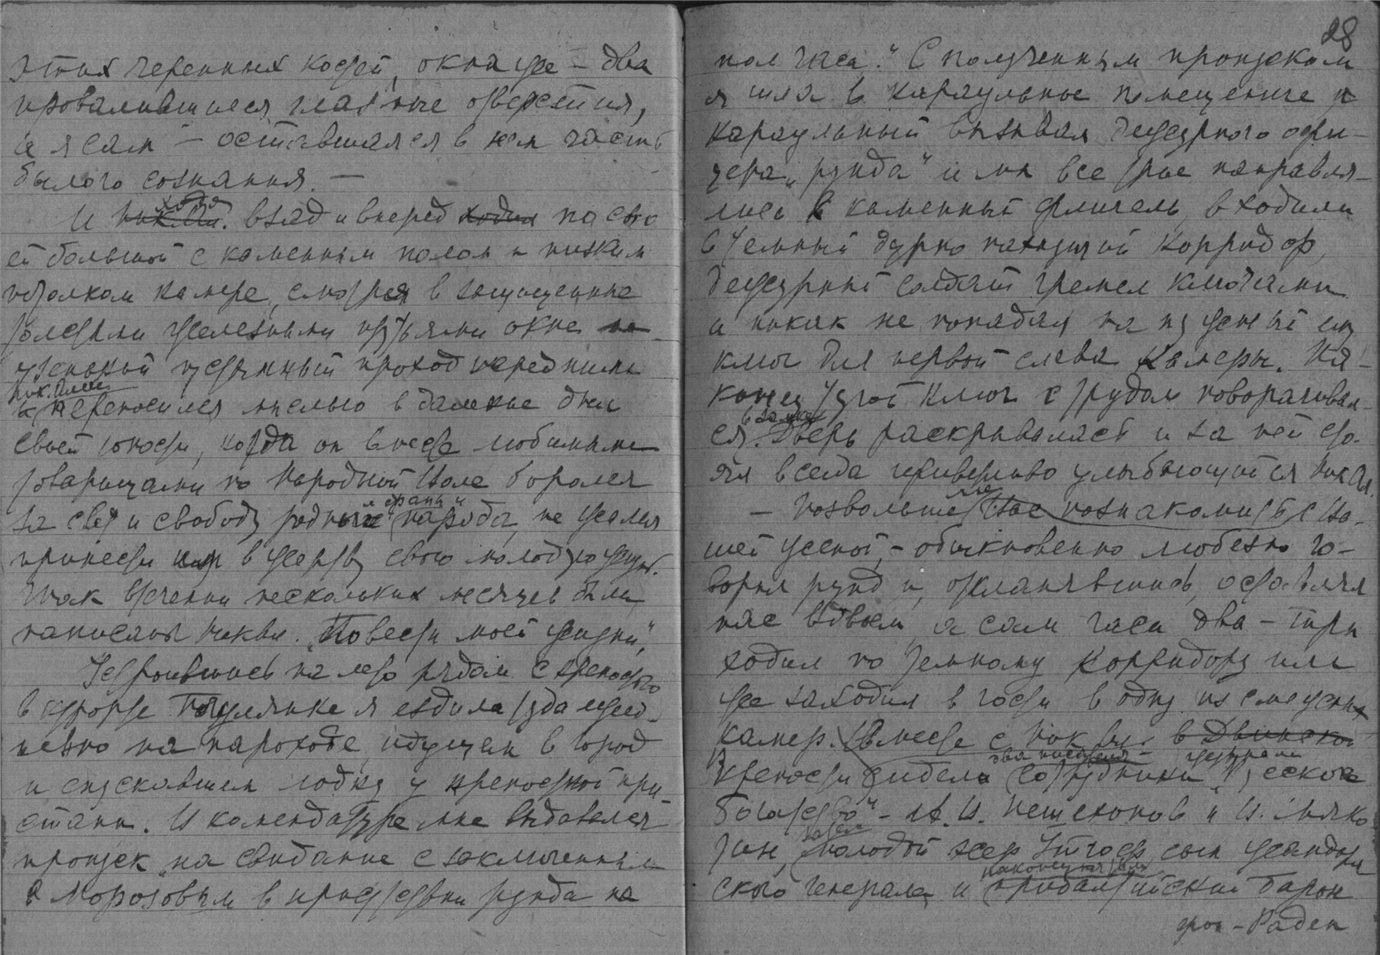 этих черепных костей, окна же – два
провалившиеся глазные отверстия,
а я сам – оставшаяся в нем часть
былого сознания. –
И ходя взад и вперед ходил по сво
ей большой с каменным полом и низким
потолком камере, смотря в защищенные
толстыми железными прутьями окна на
узенький тюремный проход перед ними
Ник. Алек.
переносился мыслью в далекие дни
своей юности, когда он вместе с любимыми
товарищами по Народной Воле боролся
за свет и свободу родной страны и народа, не жалея
принести им в жертву свою молодую жизнь.
Так в течении нескольких месяцев были
написаны им „Повести моей жизни“,
Устроившись на лето рядом с крепостью
в курорте Погулянке я ездила туда ежед-
невно на пароходе идущем в город
и спускавшем лодку у крепостной при-
стани. И комендатуре мне выдавался
пропуск „на свидание с заключенным
Морозовым в присутствии рунда на
28
пол часа“. С полученным пропуском
я шла в караульное помещение и
караульный вызывал дежурного офи-
цера „рунда“ и мы все трое направля-
лись в каменный флигель, входили
в темный дурно пахнущий корридор,
дежурный солдат гремел ключами
и никак не попадал на нужный
ключ для первой слева камеры. На-
конец тугой ключ с трудом поворачивал-
ся в замке. Дверь раскрывалась и за ней сто-
ял всегда приветливо улыбающийся Ник. Ал.
– Позвольте мне Вас познакомить с Ва-
шей женой, – обыкновенно любезно го-
ворил рунд и, откланявшись, оставлял
нас вдвоем, а сам часа два – три
ходил по темному корридору или
же заходил в гости в одну из смежных
камер. (Вместе с Ник. Ал. в Двинской
крепости сидели два писателя – сотрудники журнала „Русское
богатство“ – А. В. Пешехонов и В. Мяко-
тин, затем молодой эсер сын жандарм
ского генерала и наконец прибалтийский барон
фон – Раден